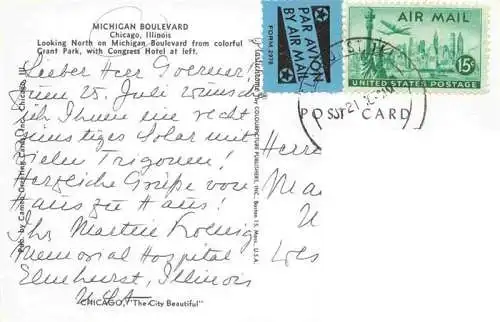 MICHIGAN BOULEVARD
Chicago, Illinois
Looking North on Michigan Boulevard from colorful
Grant Park, with Congress Hotel at left.
Lieber Herr Goerner!
Zum 25. Juli wünsche
ich Ihnen eine recht
günstiges Solar mit
vielen Trigonen!
Herzliche Grüße von
Haus zu Haus!
Ihr Martin Koenig
Memorial Hospital
Elmhurst, Illinois
USA
CHICAGO, "The City Beautiful"
Pub. by Cameo Greeting Cards, Inc., Chicago, Ill.
Plastichrome by COLOURPICTURE PUBLISHERS, INC., Boston 15, Mass., U.S.A.
PAR AVION
BY AIR MAIL
FORM 2978
AIR MAIL
15¢
UNITED STATES POSTAGE
POST CARD
Herrn